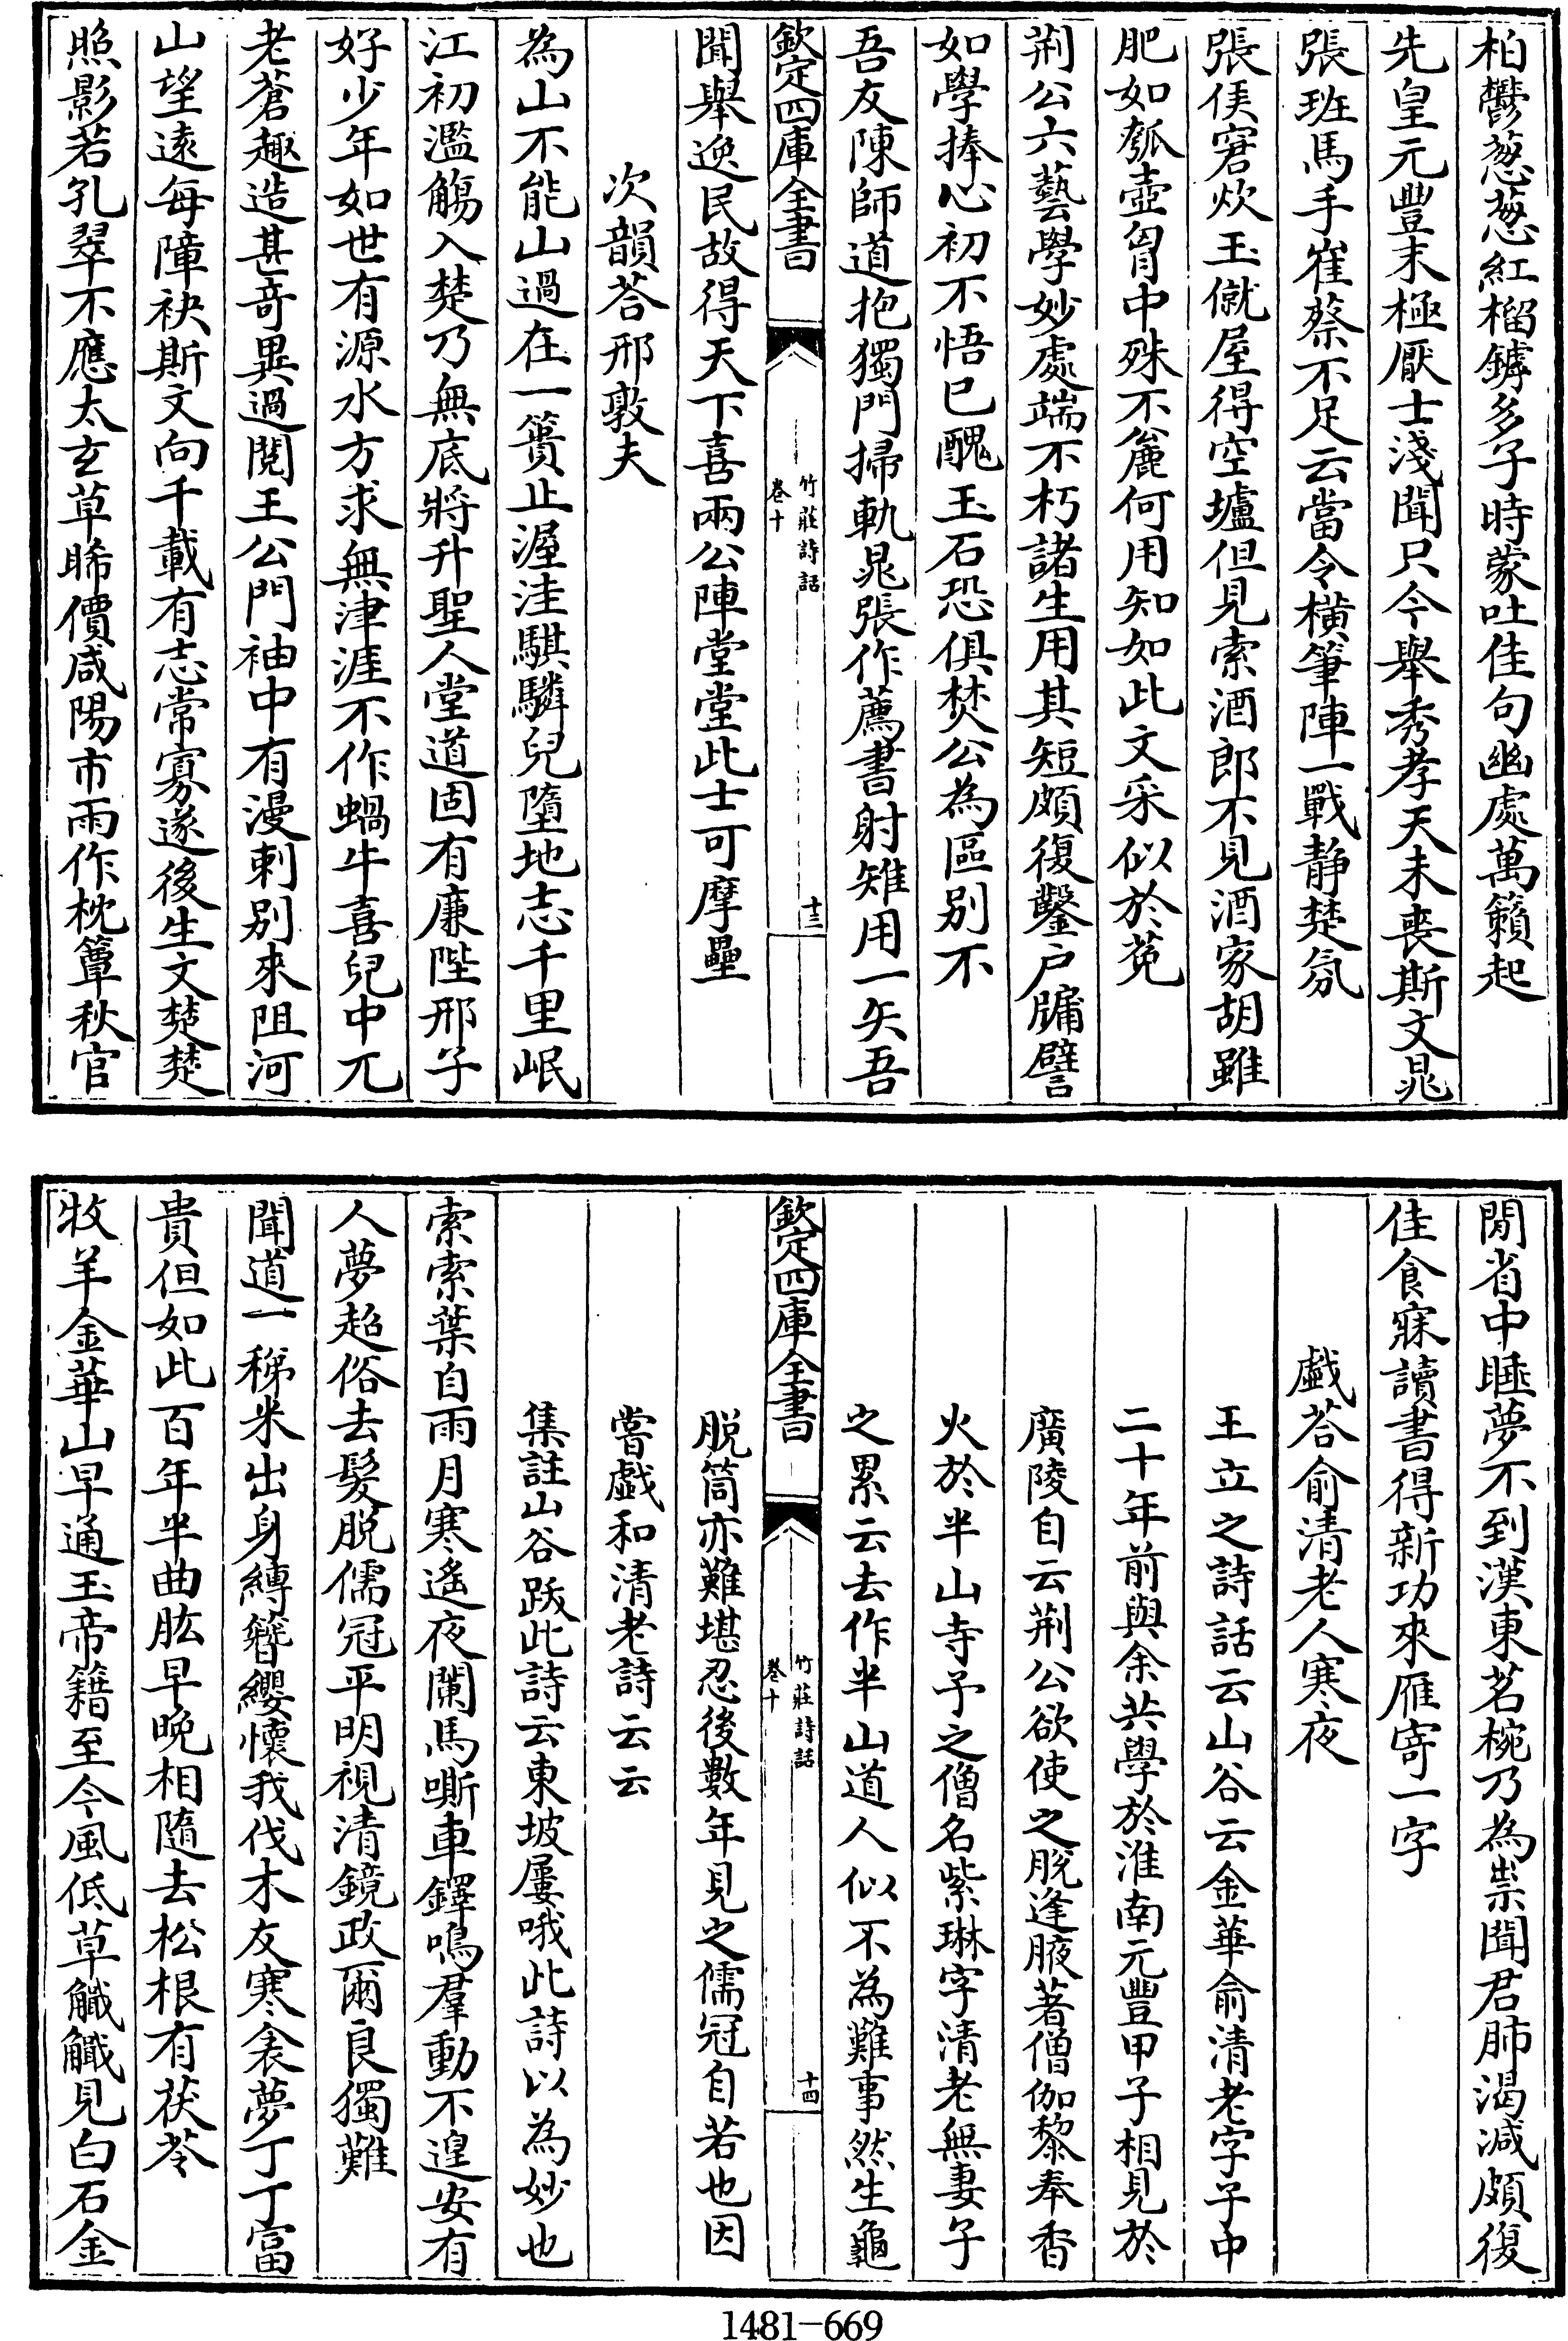 柏鬱葱葱紅榴罅多子時蒙吐佳句幽處萬籟起
先皇元豐末極厭士淺聞只今舉秀孝天未喪斯文晁
張班馬手崔蔡不足云當令橫筆陣一戰静楚氛
張侯窘炊玉僦屋得空壚但見索酒郎不見酒家胡雖
肥如瓠壺胷中殊不麄何用知如此文采似於菟
荆公六藝學妙處端不朽諸生用其短頗復鑿户牖譬
如學捧心初不悟已醜玉石恐俱焚公為區别不
吾友陳師道抱獨門掃軌晁張作薦書射雉用一矢吾
欽定四庫全書
竹莊詩話
卷十
十三
聞舉逸民故得天下喜兩公陣堂堂此士可摩壘
次韻荅邢敦夫
為山不能山過在一簣止渥洼騏驎兒墮地志千里岷
江初濫觴入楚乃無底將升聖人堂道固有廉陛邢子
好少年如世有源水方求無津涯不作蝸牛喜兒中兀
老蒼趣造甚奇異過閲王公門袖中有漫刺别來阻河
山望遠每障袂斯文向千載有志常寡遂後生文楚楚
照影若孔翠不應太玄草睎價咸陽市雨作枕簟秋官
閒省中睡夢不到漢東茗椀乃為祟聞君肺渴減頗復
佳食寐讀書得新功來雁寄一字
戯荅俞清老人寒夜
王立之詩話云山谷云金華俞清老字子中
二十年前與余共學於淮南元豐甲子相見於
廣陵自云荆公欲使之脱逢腋著僧伽黎奉香
火於半山寺予之僧名紫琳字清老無妻子
之累云去作半山道人似不為難事然生龜
欽定四庫全書
竹莊詩話
卷十
十四
脱筒亦難堪忍後數年見之儒冠自若也因
嘗戯和清老詩云云
集註山谷跋此詩云東坡屢哦此詩以為妙也
索索葉自雨月寒遙夜闌馬嘶車鐸鳴羣動不遑安有
人夢超俗去髮脱儒冠平明視清鏡政爾良獨難
聞道一稊米出身縛簪纓懷我伐木友寒衾夢丁丁富
貴但如此百年半曲肱早晚相隨去松根有茯苓
牧羊金華山早通玉帝籍至今風低草觿觿見白石金
1481-669